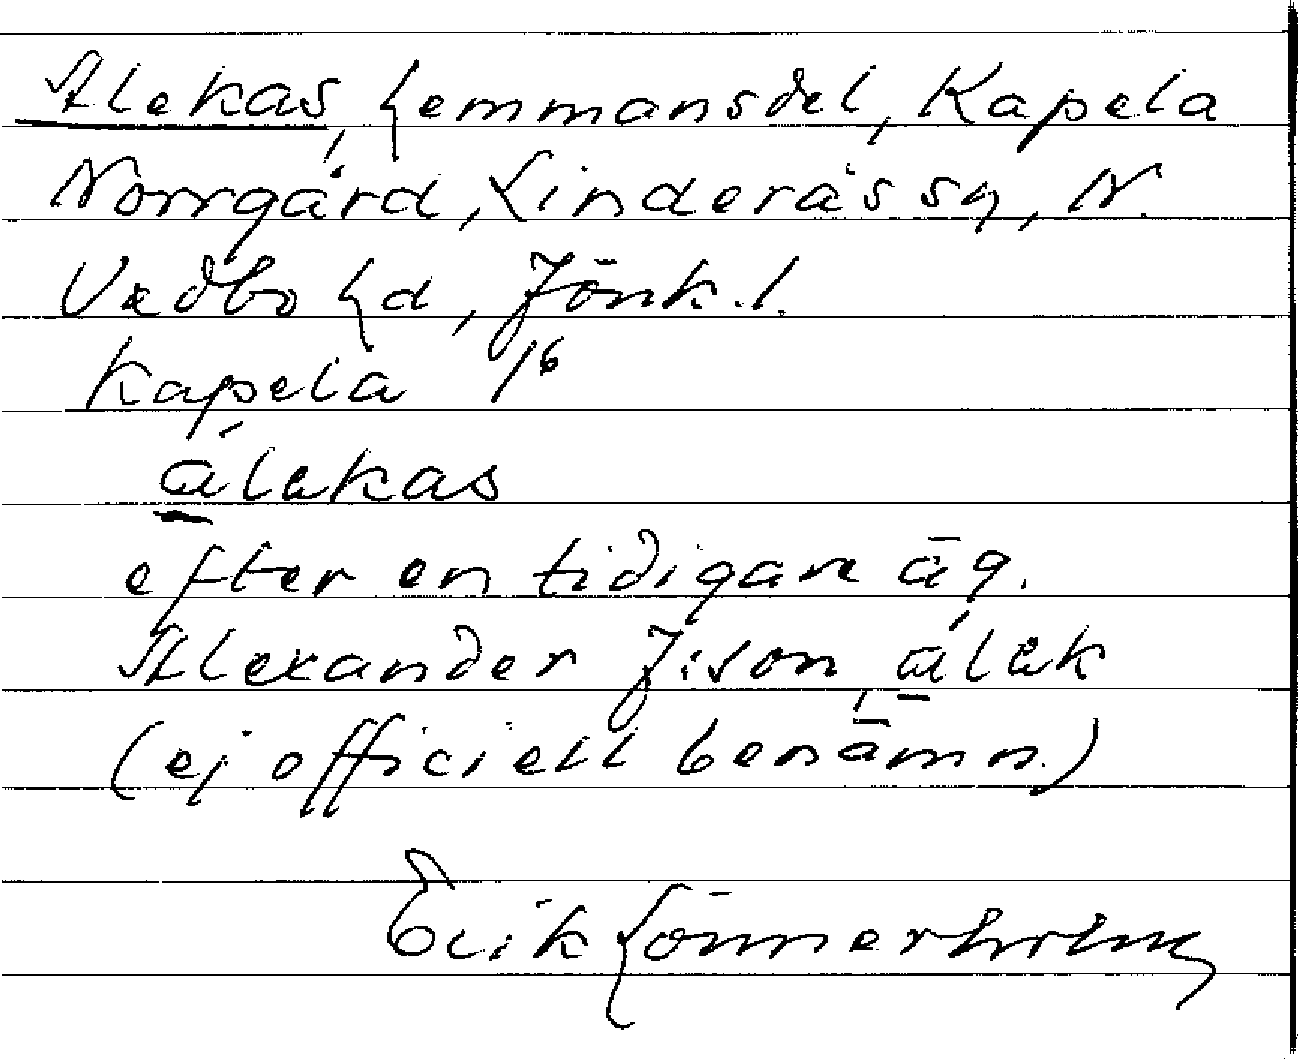 Alekas, hemmansdel, Kapela
Norrgård, Linderås sn, N.
Vedbo hd, Jönk. l.
Kapela 1⁶
álekas
efter en tidigare äg.
Alexander J:son, álek
(ej officiell benämn.)
Erik Lönnerholm